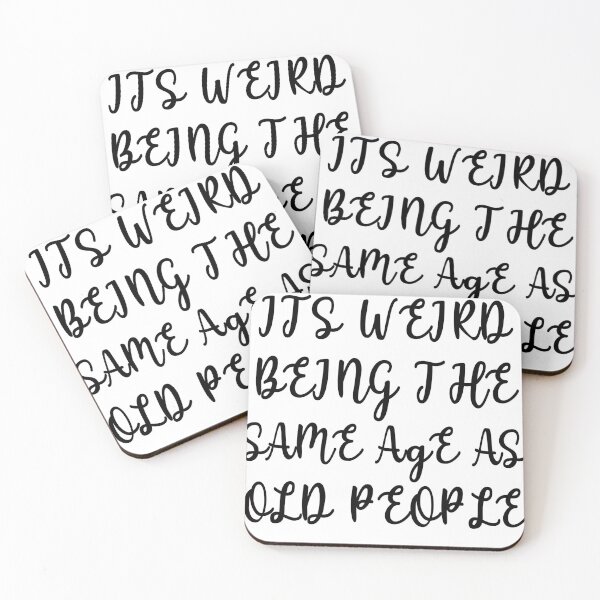 ITS WEIRD
BEING THE
ITS WEIRD
BEING THE
SAME AgE AS
ITS WEIRD
BEING THE
SAME AgE AS
OLD
ITS WEIRD
BEING THE
SAME AgE AS
OLD PEOPLE